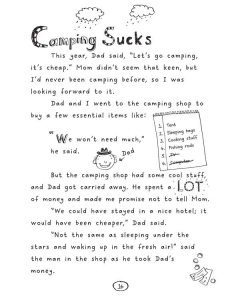 Camping Sucks
This year, Dad said, "Let's go camping,
it's cheap." Mom didn't seem that keen, but
I'd never been camping before, so I was
looking forward to it.
Dad and I went to the camping shop to
buy a few essential items like:
1. Tent
2. Sleeping bags
3. Cooking stuff
4. Fishing rods
5.
6.
"We won't need much,"
he said.
Dad
But the camping shop had some cool stuff,
and Dad got carried away. He spent a LOT
of money and made me promise not to tell Mom.
"We could have stayed in a nice hotel; it
would have been cheaper," Dad said.
"Not the same as sleeping under the
stars and waking up in the fresh air!" said
the man in the shop as he took Dad's
money.
16